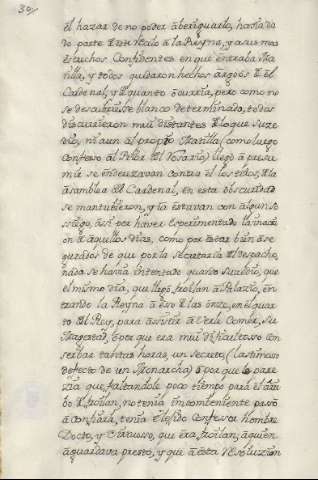 30
el hazar de no poder aberiguarlo, havia da
do parte de todo esto à la Reyna, y a sus mas
estrechos Confidentes en que entraba Ma
tilla, y todos quedaron hechos argos del
Cardenal, y de quanto ocurria, pero como no
se descubriese blanco determinado, todos
discurrieron mui distantes de lo que suze
dio, ni aun al propio Matilla (como luego
confeso al Pelez del Rosario) llegò a presu
mir se enderezavan contra el los tiros, de la
asamblea del Cardenal, en esta obscuridad
se mantubieron, y ia estavan con algun so
siego, asi por haver experimentado la inacci
on de aquellos dias, como por estar bien ase
gurados de que por la Secretaria del despacho,
nada se havia intentado quando sucedio, que
el mismo dia, que llegò froilan à Palazio, en
trando la Reyna à eso de las onze, en el quar
to del Rey, para asistir à verle Comer, su
Magestad, ò por que era mui dificultoso con
serbar tantas horas, un secreto (lastimoso
defecto de un Monarcha) ò por que le pare
zia que faltandole poco tiempo para el arri
bo de froilan, no tenia inconbeniente para
confiarla, tenia elexido Confesor hombre
Docto, y virtuoso, que era froilan, à quien
aguardava presto, y que à esta resoluzion